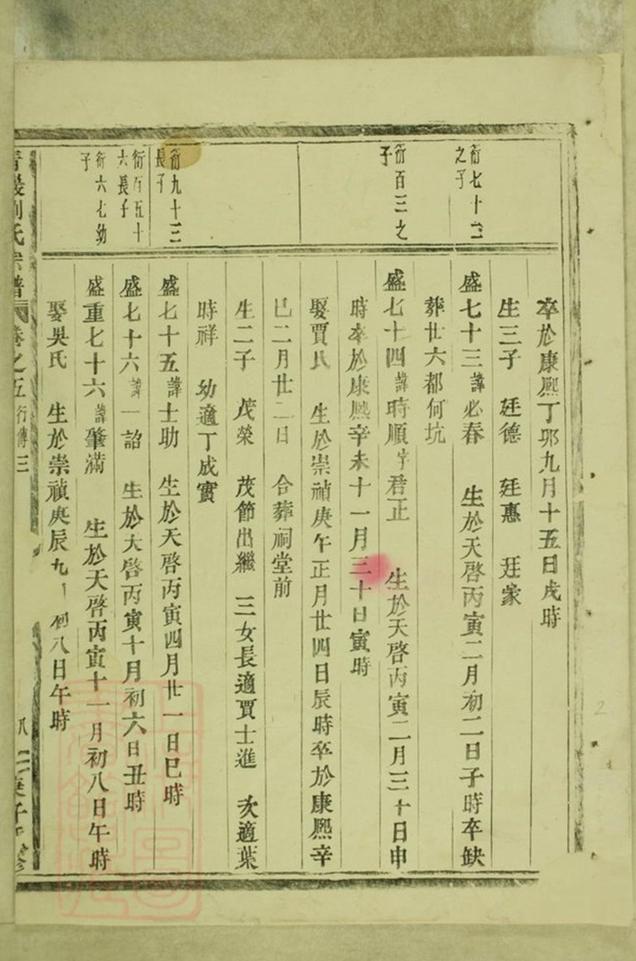 卒於康熙丁卯九月十五日戌時
生三子 廷德 廷惠 廷家
衍七十三之子
盛七十三諱必春 生於天啓丙寅二月初二日子時卒缺
葬廿六都何坑
衍百三之子
盛七十四諱時順字君正 生於天啓丙寅二月三十日申
時卒於康熙辛未十一月三十日寅時
娶賈氏 生於崇禎庚午正月廿四日辰時卒於康熙辛
巳二月廿二日 合葬祠堂前
生二子 茂榮 茂節出繼 三女長適賈士進 次適葉
時祥 幼適丁成實
衍九十三長子
盛七十五諱士助 生於天啓丙寅四月廿一日巳時
衍百五十六長子
盛七十六諱一詔 生於天啓丙寅十月初六日丑時
衍六七幼子
盛重七十六諱肇滿 生於天啓丙寅十一月初八日午時
娶吳氏 生於崇禎庚辰九 初八日午時
劉氏宗譜 卷之五 行傳三
八 庚子